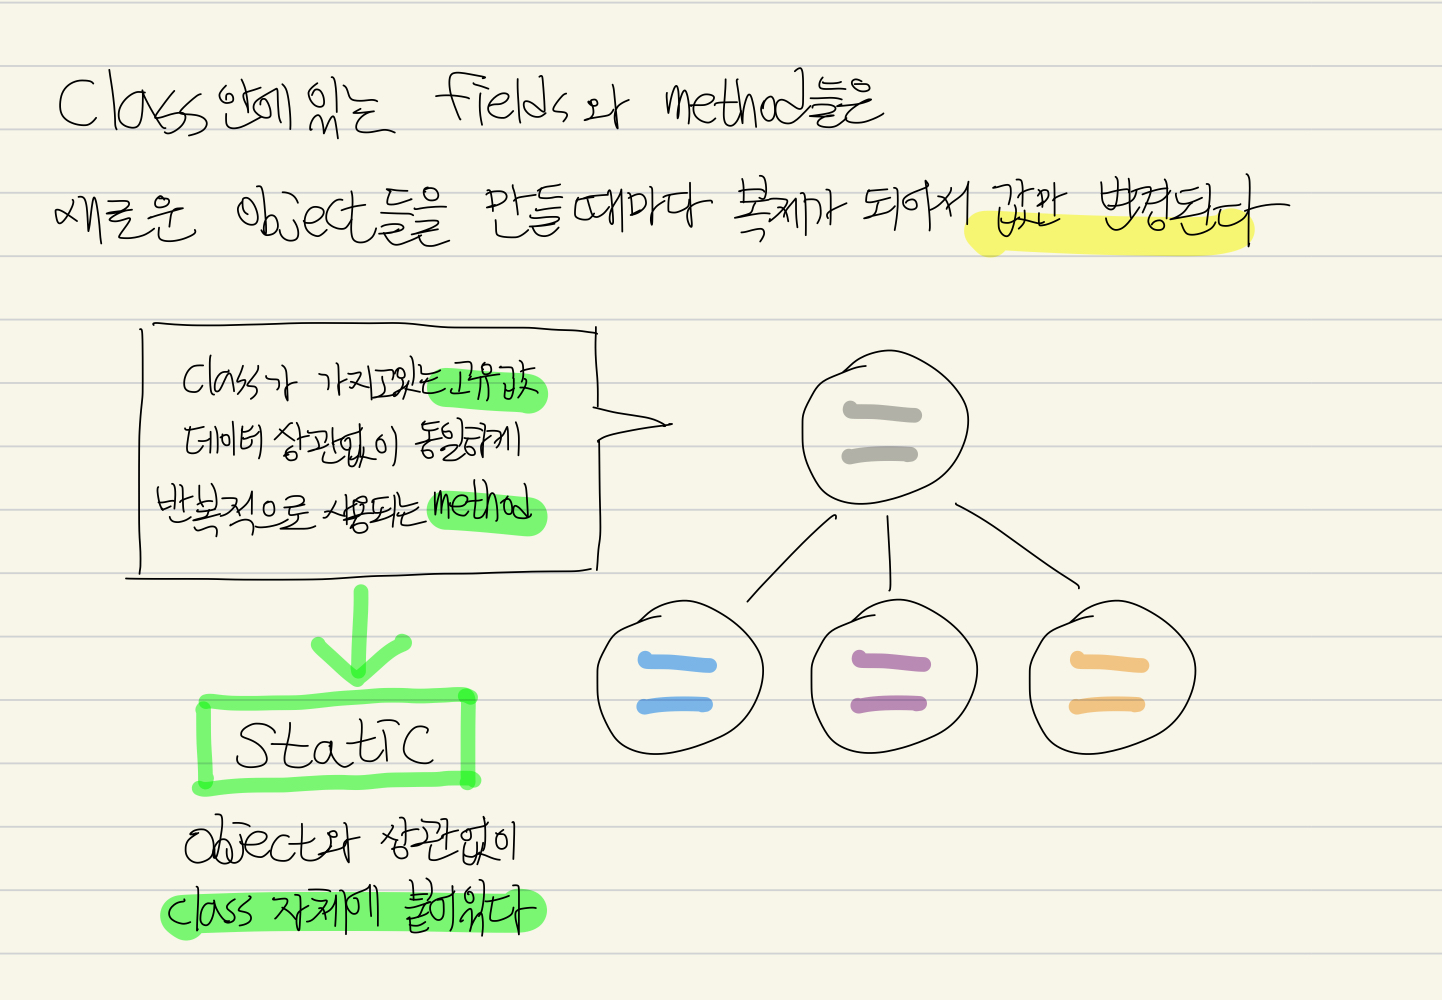 Class안에 있는 fields와 method들은
새로운 Object들을 만들때마다 복제가 되어서 값만 변경된다
Class가 가지고있는 고유값
데이터 상관없이 동일하게
반복적으로 사용되는 method
Static
Object와 상관없이
class 자체에 붙어있다